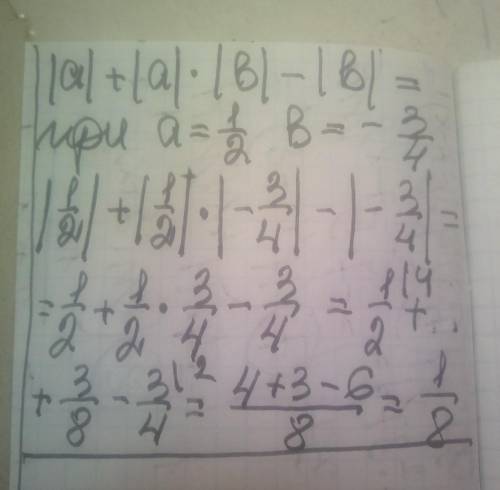 |a| + |a| · |в| - |в| =
при a = 1/2 в = - 3/4
|1/2| + |1/2| · |- 3/4| - |- 3/4| =
= 1/2 + 1/2 · 3/4 - 3/4 = 1/2 |4 +
+ 3/8 - 3/4 |2 = (4 + 3 - 6)/8 = 1/8